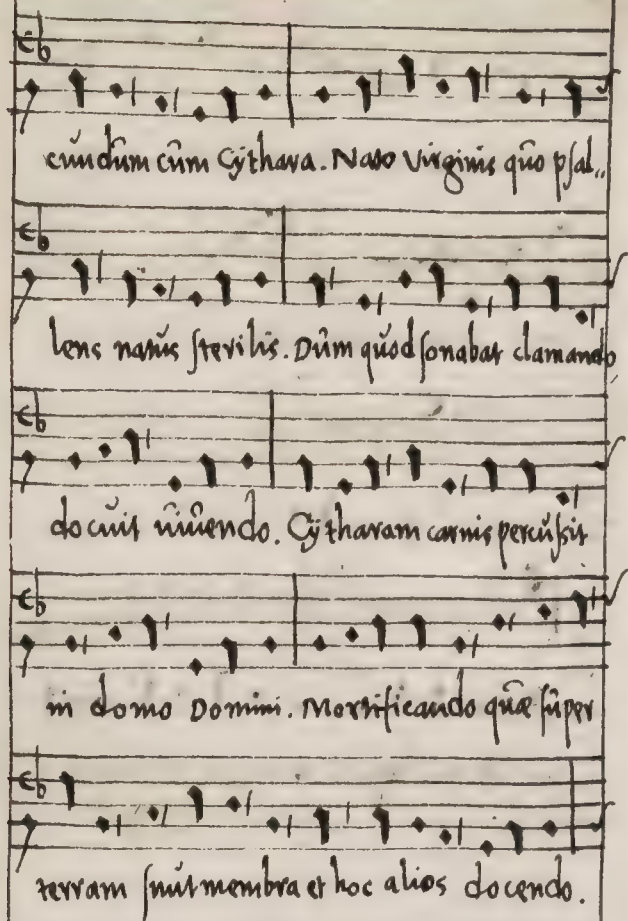 cundum cum Cythara. Nato Virginis quo psal„
lens natus sterilis. Dum quod sonabat clamando
docuit vivendo. Cytharam carnis percussit
in domo Domini. Mortificando quæ super
terram sunt membra et hoc alios docendo.